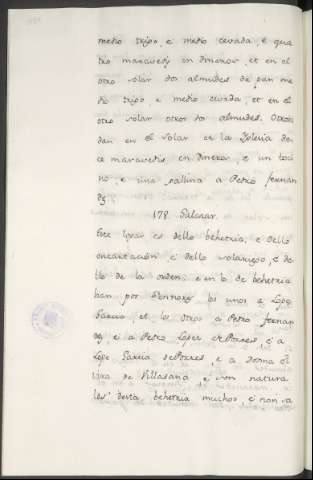 medio trigo, e medio cevada, e qua
tro maravedis en dineros, et en el
otro solar dos almudes de pan me
dio trigo e medio cevada, et en el
otro solar otros dos almudes. Otrosi
dan en el solar de la Iglesia do
ce maravedis en dineros, e un toci
no, e una gallina a Petro fernan
dz.
178. Salazar.
Este logar es dello behetria, e dello
encartacion, e dello solariego, e de
llo de la orden; e en lo de behetria
han por Sennores los unos a Lope
Garcia, et los otros a Petro fernan
dz, e a Petro Lopez de Porres, e a
Lope Garcia de Porres, e a Donna El
vira de Villasana, e son natura
les desta behetria muchos, e non sa